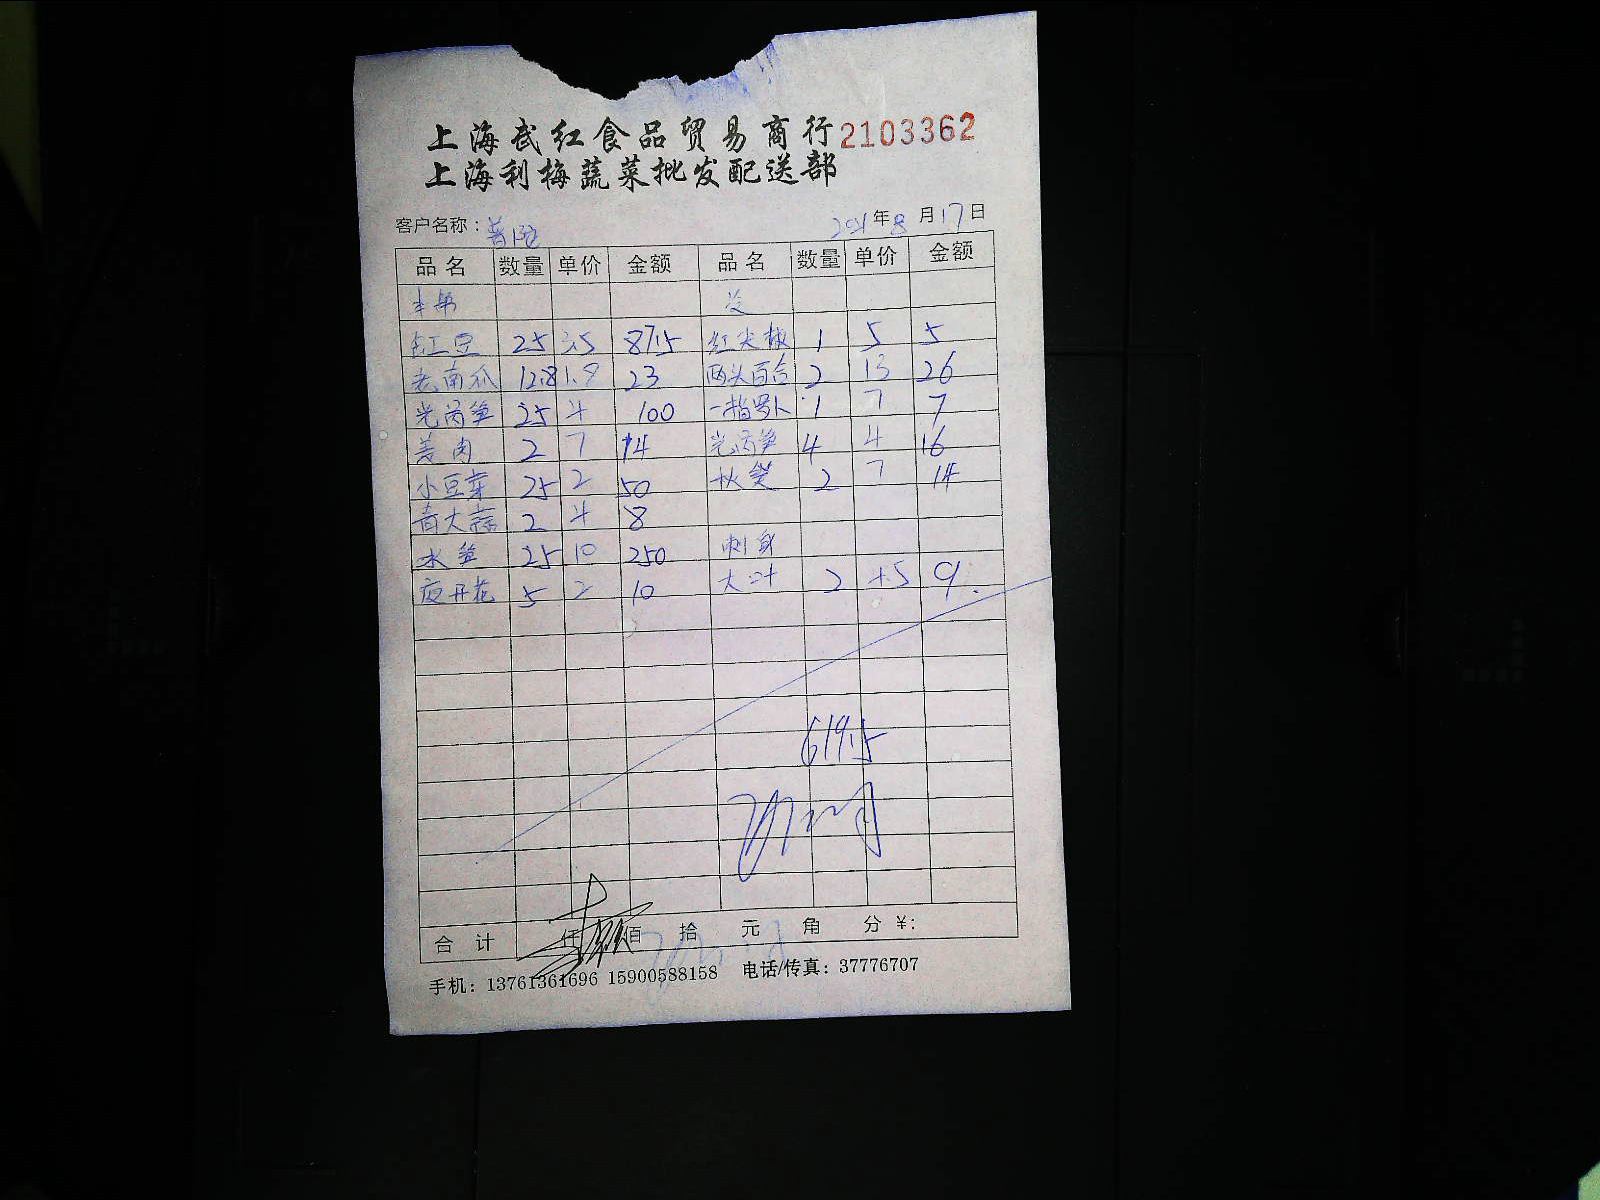 上海武红食品贸易商行 2103362
上海利梅蔬菜批发配送部
客户名称: 普陀 2021年8月17日
品名 数量 单价 金额 品名 数量 单价 金额
豇豆 25 3.5 87.5 红尖椒 1 5 5
老南瓜 12.8 1.8 23 两头百合 2 13 26
光莴笋 25 4 100 一指罗卜 1 7 7
姜肉 2 7 14 光莴笋 4 4 16
小豆芽 25 2 50 秋葵 2 7 14
青大蒜 2 4 8
水笋 25 10 250 刺身
夜开花 5 2 10 大叶 2 4.5 9.
619.5
合计 仟 佰 拾 元 角 分 ¥:
手机: 13761361696 15900588158 电话/传真: 37776707